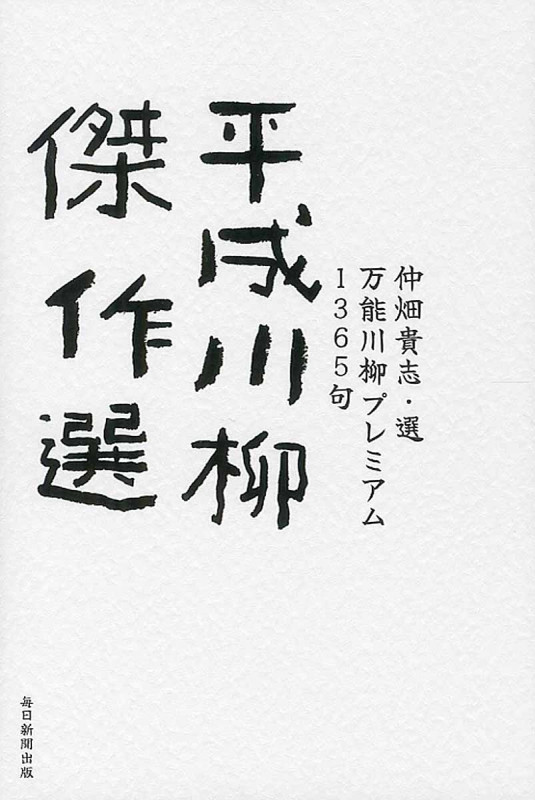 仲畑貴志・選
万能川柳プレミアム
1365句
平成川柳
傑作選
毎日新聞出版